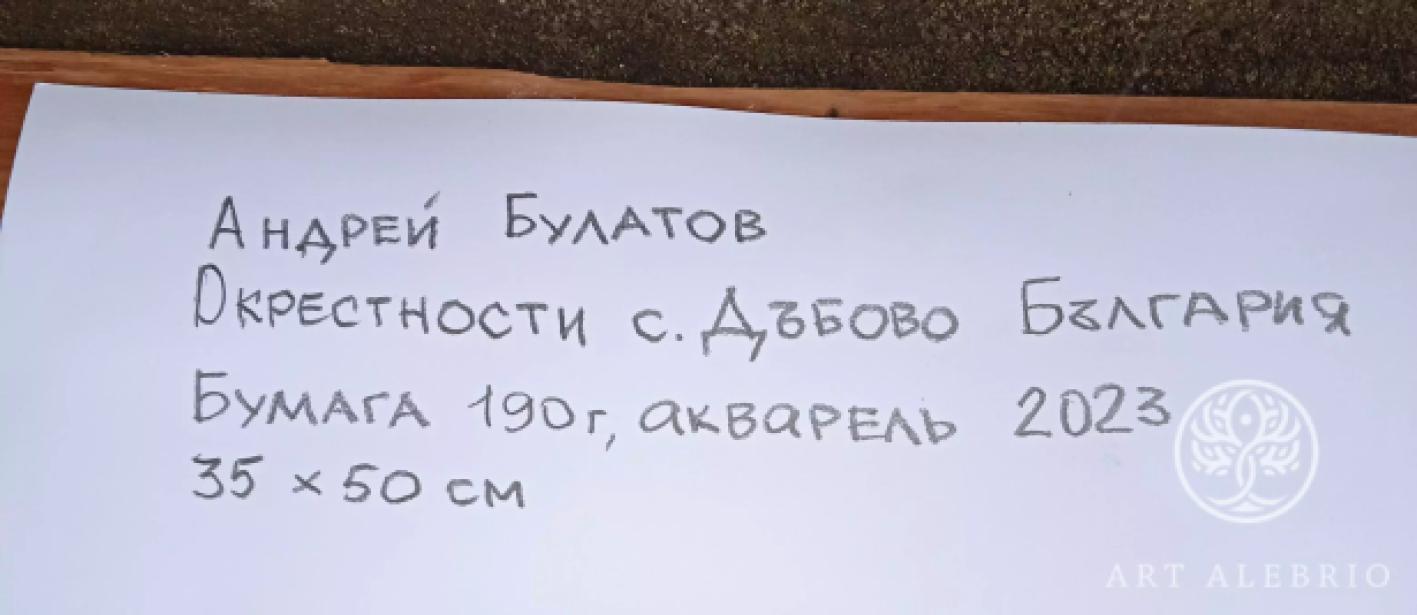 Андрей Булатов
Окрестности с. Дъбово България
Бумага 190г, акварель 2023
35 × 50 см
ART ALEBRIO